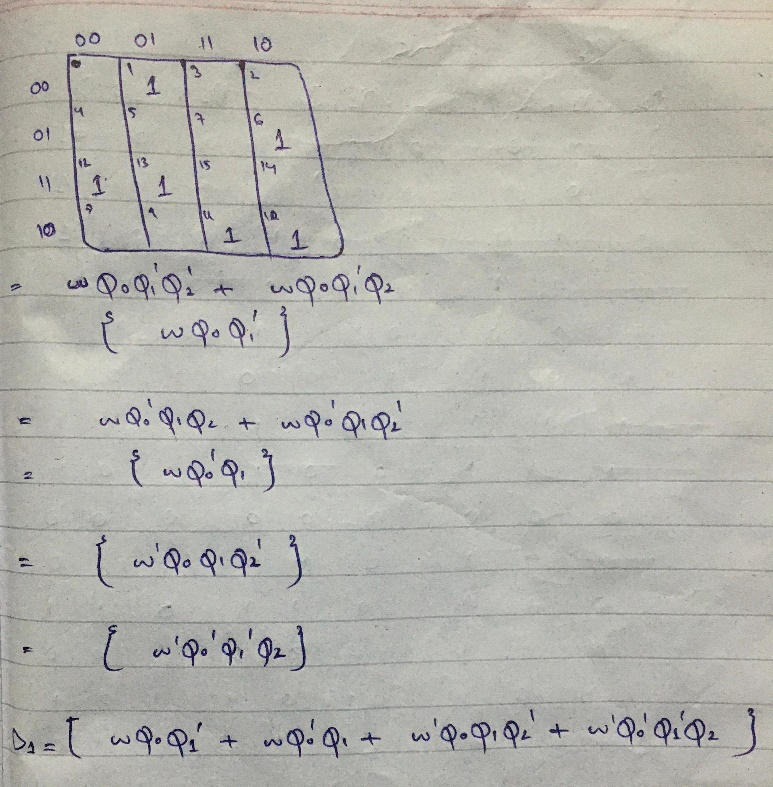 00 01 11 10
00 0 1 1 3 2
01 4 5 7 6 1
11 12 1 13 1 15 14
10 9 11 1 10 1
= wQ₀Q₁'Q₂' + wQ₀Q₁'Q₂
{ wQ₀Q₁' }
= wQ₀'Q₁Q₂ + wQ₀'Q₁Q₂'
= { wQ₀'Q₁ }
= { w'Q₀Q₁Q₂' }
= { w'Q₀'Q₁'Q₂ }
D₁ = [ wQ₀Q₁' + wQ₀'Q₁ + w'Q₀Q₁Q₂' + w'Q₀'Q₁'Q₂ }